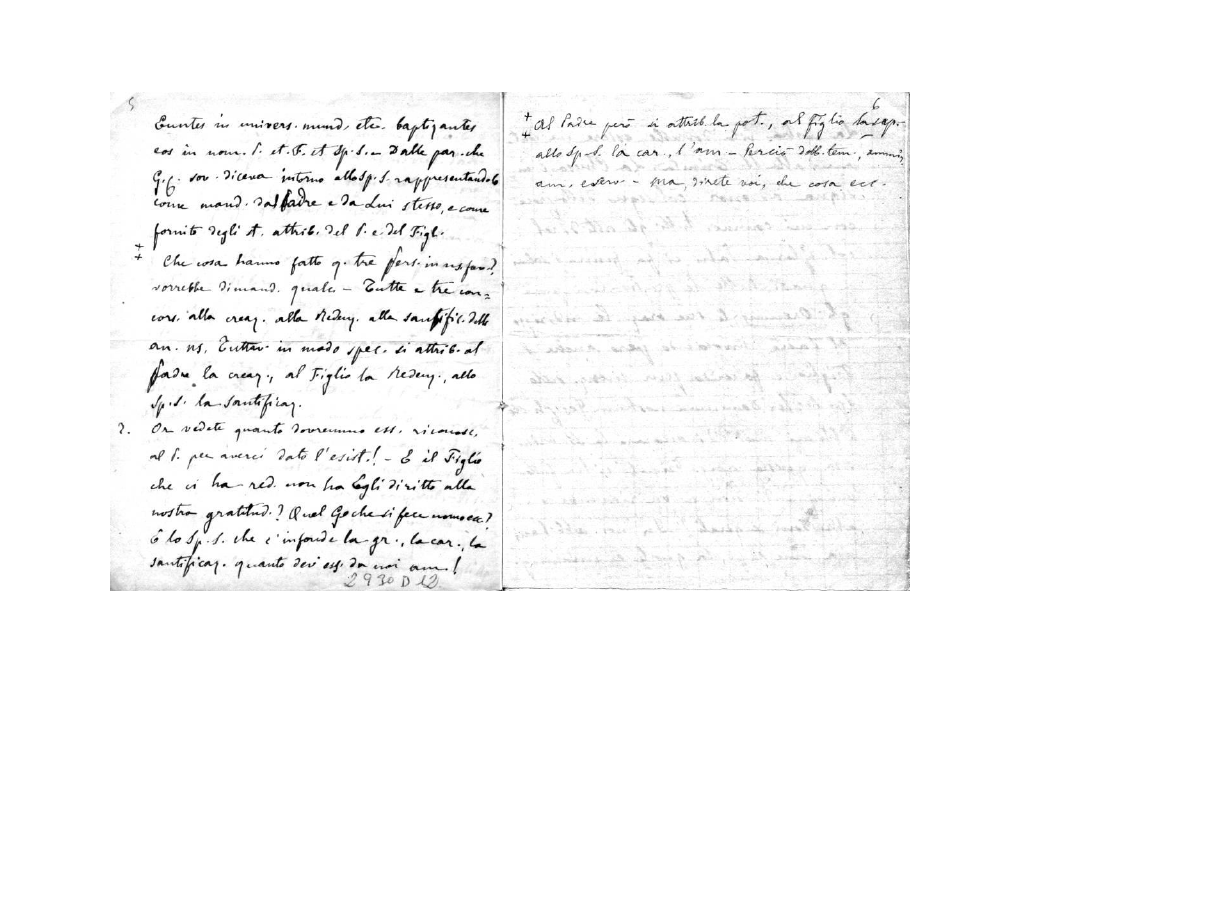 5
Euntes in univers. mund. etc. baptizantes
eos in nom. P. et. F. et Sp. S. - Dalle par. che
G. C. sov. diceva intorno allo Sp. S. rappresentandolo
come mand. dal Padre e da Lui stesso, e come
fornito degli st. attrib. del P. e del Figl.
‡ Che cosa hanno fatto q. tre Pers. in ns. fav.?
vorrebbe dimand. qualc. - Tutte e tre con=
cors. alla creaz. alla Redenz. alla santific. delle
an. ns. Tuttav. in modo spec. si attrib. al
Padre la creaz., al Figlio la Redenz., allo
Sp. S. la santificaz.
2. Or vedete quanto dovremmo ess. riconosc.
al P. per averci dato l'esist.! - E il Figlio
che ci ha red. non ha Egli diritto alla
nostra gratitud.? Quel che si fece uomo ecc?
E lo Sp. S. che c'infonde la gr., la car., la
santificaz. quanto dev'ess. da noi am.!
2930 D 12
6
‡ Al Padre però si attrib. la pot., al Figlio la sap.
allo Sp. S. la car., l'am. - Perciò dobb. tem.,
am. - Ma, direte voi, che cosa ecc.